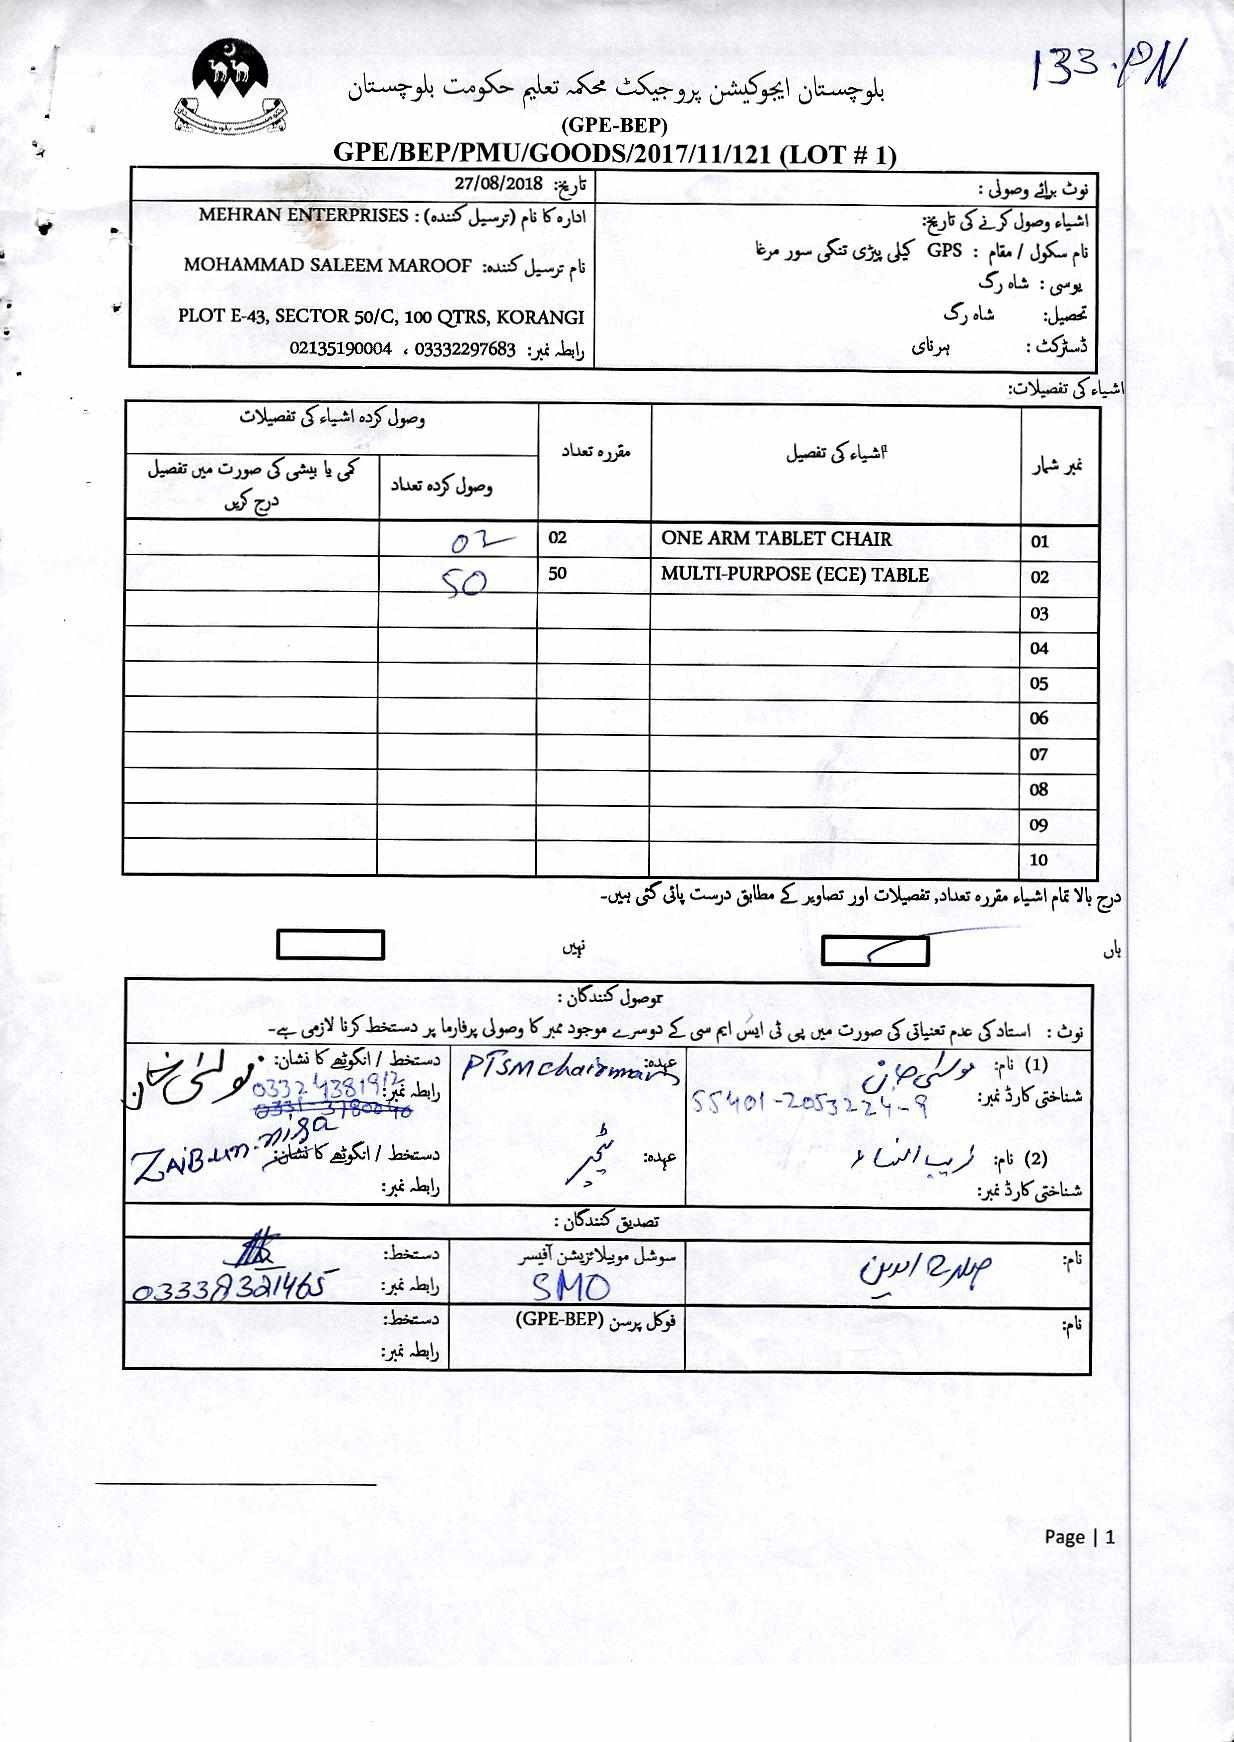 133.PN
بلوچستان ایجوکیشن پروجیکٹ محکمہ تعلیم حکومت بلوچستان
(GPE-BEP)
GPE/BEP/PMU/GOODS/2017/11/121 (LOT # 1)
نوٹ برائے وصولی :
اشیاء وصول کرنے کی تاریخ:
نام سکول / مقام : GPS کیلی پیڑی تنگی سور مرغا
یوسی : شاہ رگ
تحصیل: شاہ رگ
ڈسٹرکٹ : ہرنائی
تاریخ: 27/08/2018
ادارہ کا نام (ترسیل کنندہ) : MEHRAN ENTERPRISES
نام ترسیل کنندہ: MOHAMMAD SALEEM MAROOF
PLOT E-43, SECTOR 50/C, 100 QTRS, KORANGI
رابطہ نمبر: 03332297683 ، 02135190004
اشیاء کی تفصیلات:
نمبر شمار اشیاء کی تفصیل مقررہ تعداد وصول کردہ اشیاء کی تفصیلات
وصول کردہ تعداد کمی یا بیشی کی صورت میں تفصیل
درج کریں
01 ONE ARM TABLET CHAIR 02 02
02 MULTI-PURPOSE (ECE) TABLE 50 50
03
04
05
06
07
08
09
10
درج بالا تمام اشیاء مقررہ تعداد, تفصیلات اور تصاویر کے مطابق درست پائی گئی ہیں۔
ہاں نہیں
وصول کنندگان :
نوٹ : استاد کی عدم تعنیاتی کی صورت میں پی ٹی ایس ایم سی کے دوسرے موجود ممبر کا وصولی پرفارما پر دستخط کرنا لازمی ہے۔
(1) نام: موسٰی جان عہدہ: PTSM Chairman دستخط / انگوٹھے کا نشان: موسٰی خان
شناختی کارڈ نمبر: 55401-2053224-9 رابطہ نمبر: 0332
(2) نام: زیب النساء عہدہ: ٹیچر دستخط / انگوٹھے کا نشان: ZAIB-un-nisa
شناختی کارڈ نمبر: رابطہ نمبر:
تصدیق کنندگان :
نام: سوشل موبیلائزیشن آفیسر دستخط:
SMO رابطہ نمبر: 03338321465
نام: فوکل پرسن (GPE-BEP) دستخط:
رابطہ نمبر:
Page | 1